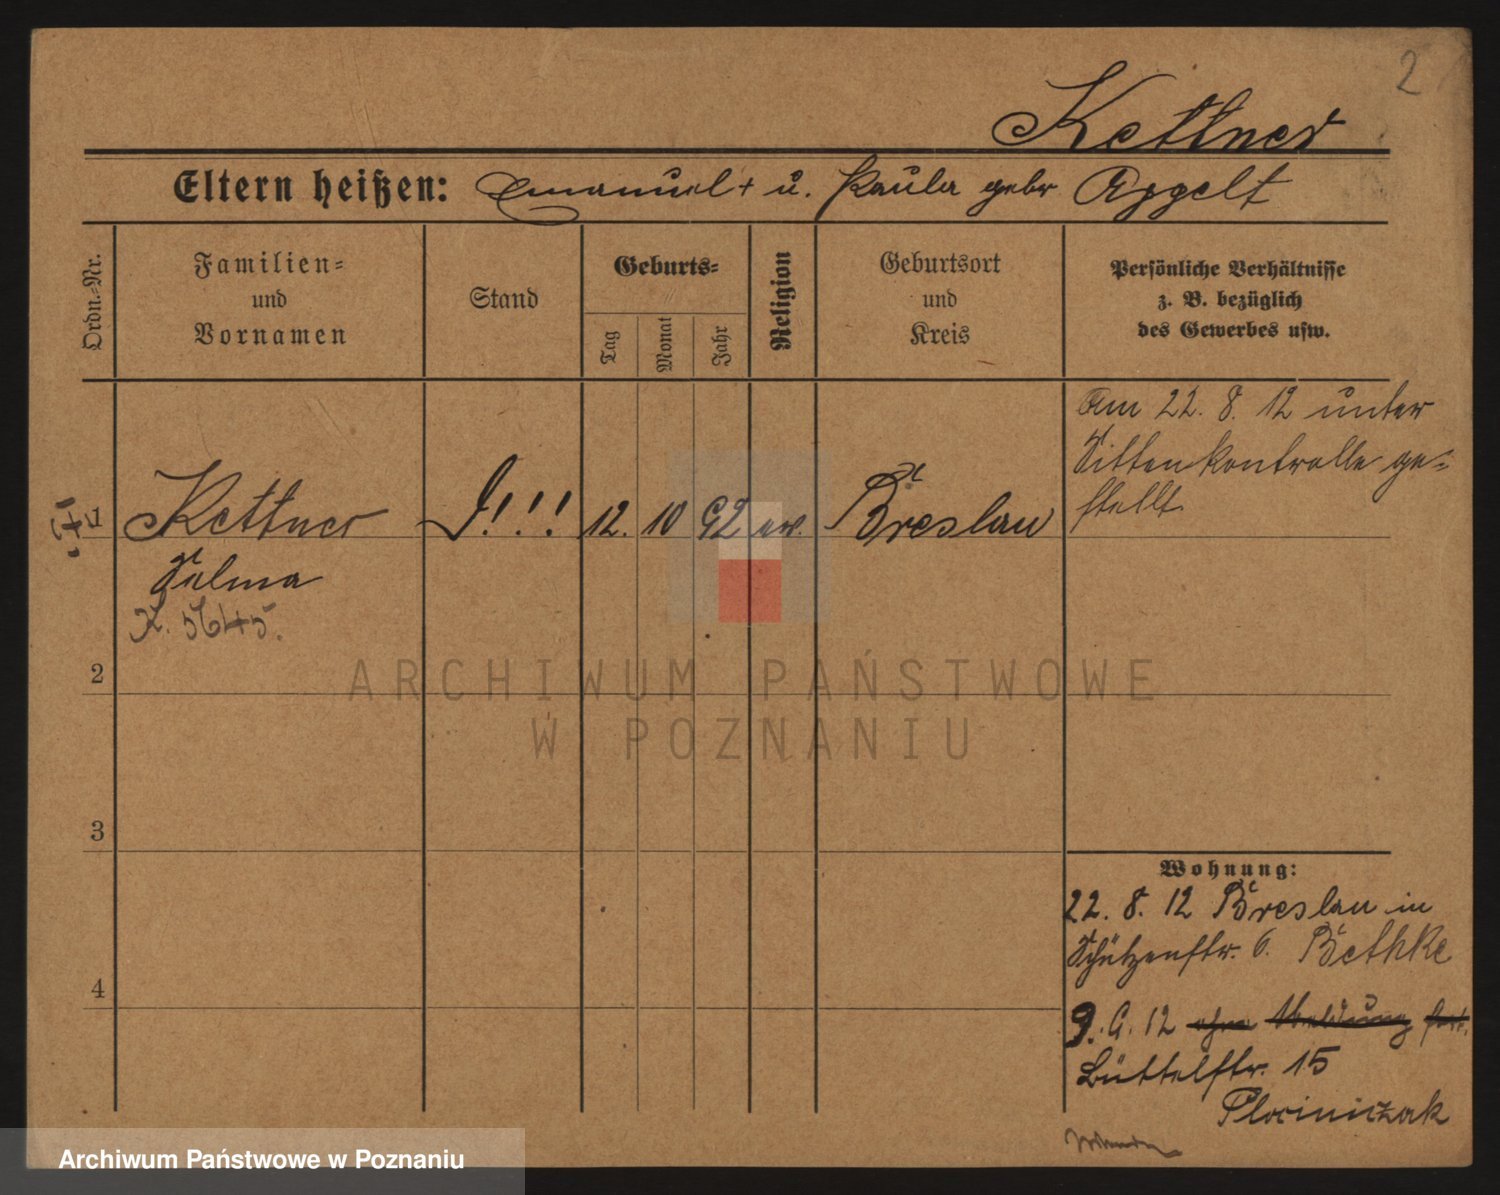 2
Kettner
Eltern heißen: Emanuel + u. Paula gebr Appelt
Ordn.=Nr.
Familien=
und
Vornamen
Stand
Geburts=
Tag
Monat
Jahr
Religion
Geburtsort
und
Kreis
Persönliche Verhältnisse
z. B. bezüglich
des Gewerbes usw.
1
Kettner
Selma
K. 5645.
!!!
12. 10 92 ev.
Breslau
Am 22. 8. 12 unter
Sittenkontrolle ge=
stellt
2
3
4
Wohnung:
22. 8. 12 Breslau in
Schützenstr. 6. Bethke
9. 9. 12 ohne Meldung fort.
Büttelstr. 15
Plociniczak
ARCHIWUM PAŃSTWOWE
W POZNANIU
Archiwum Państwowe w Poznaniu